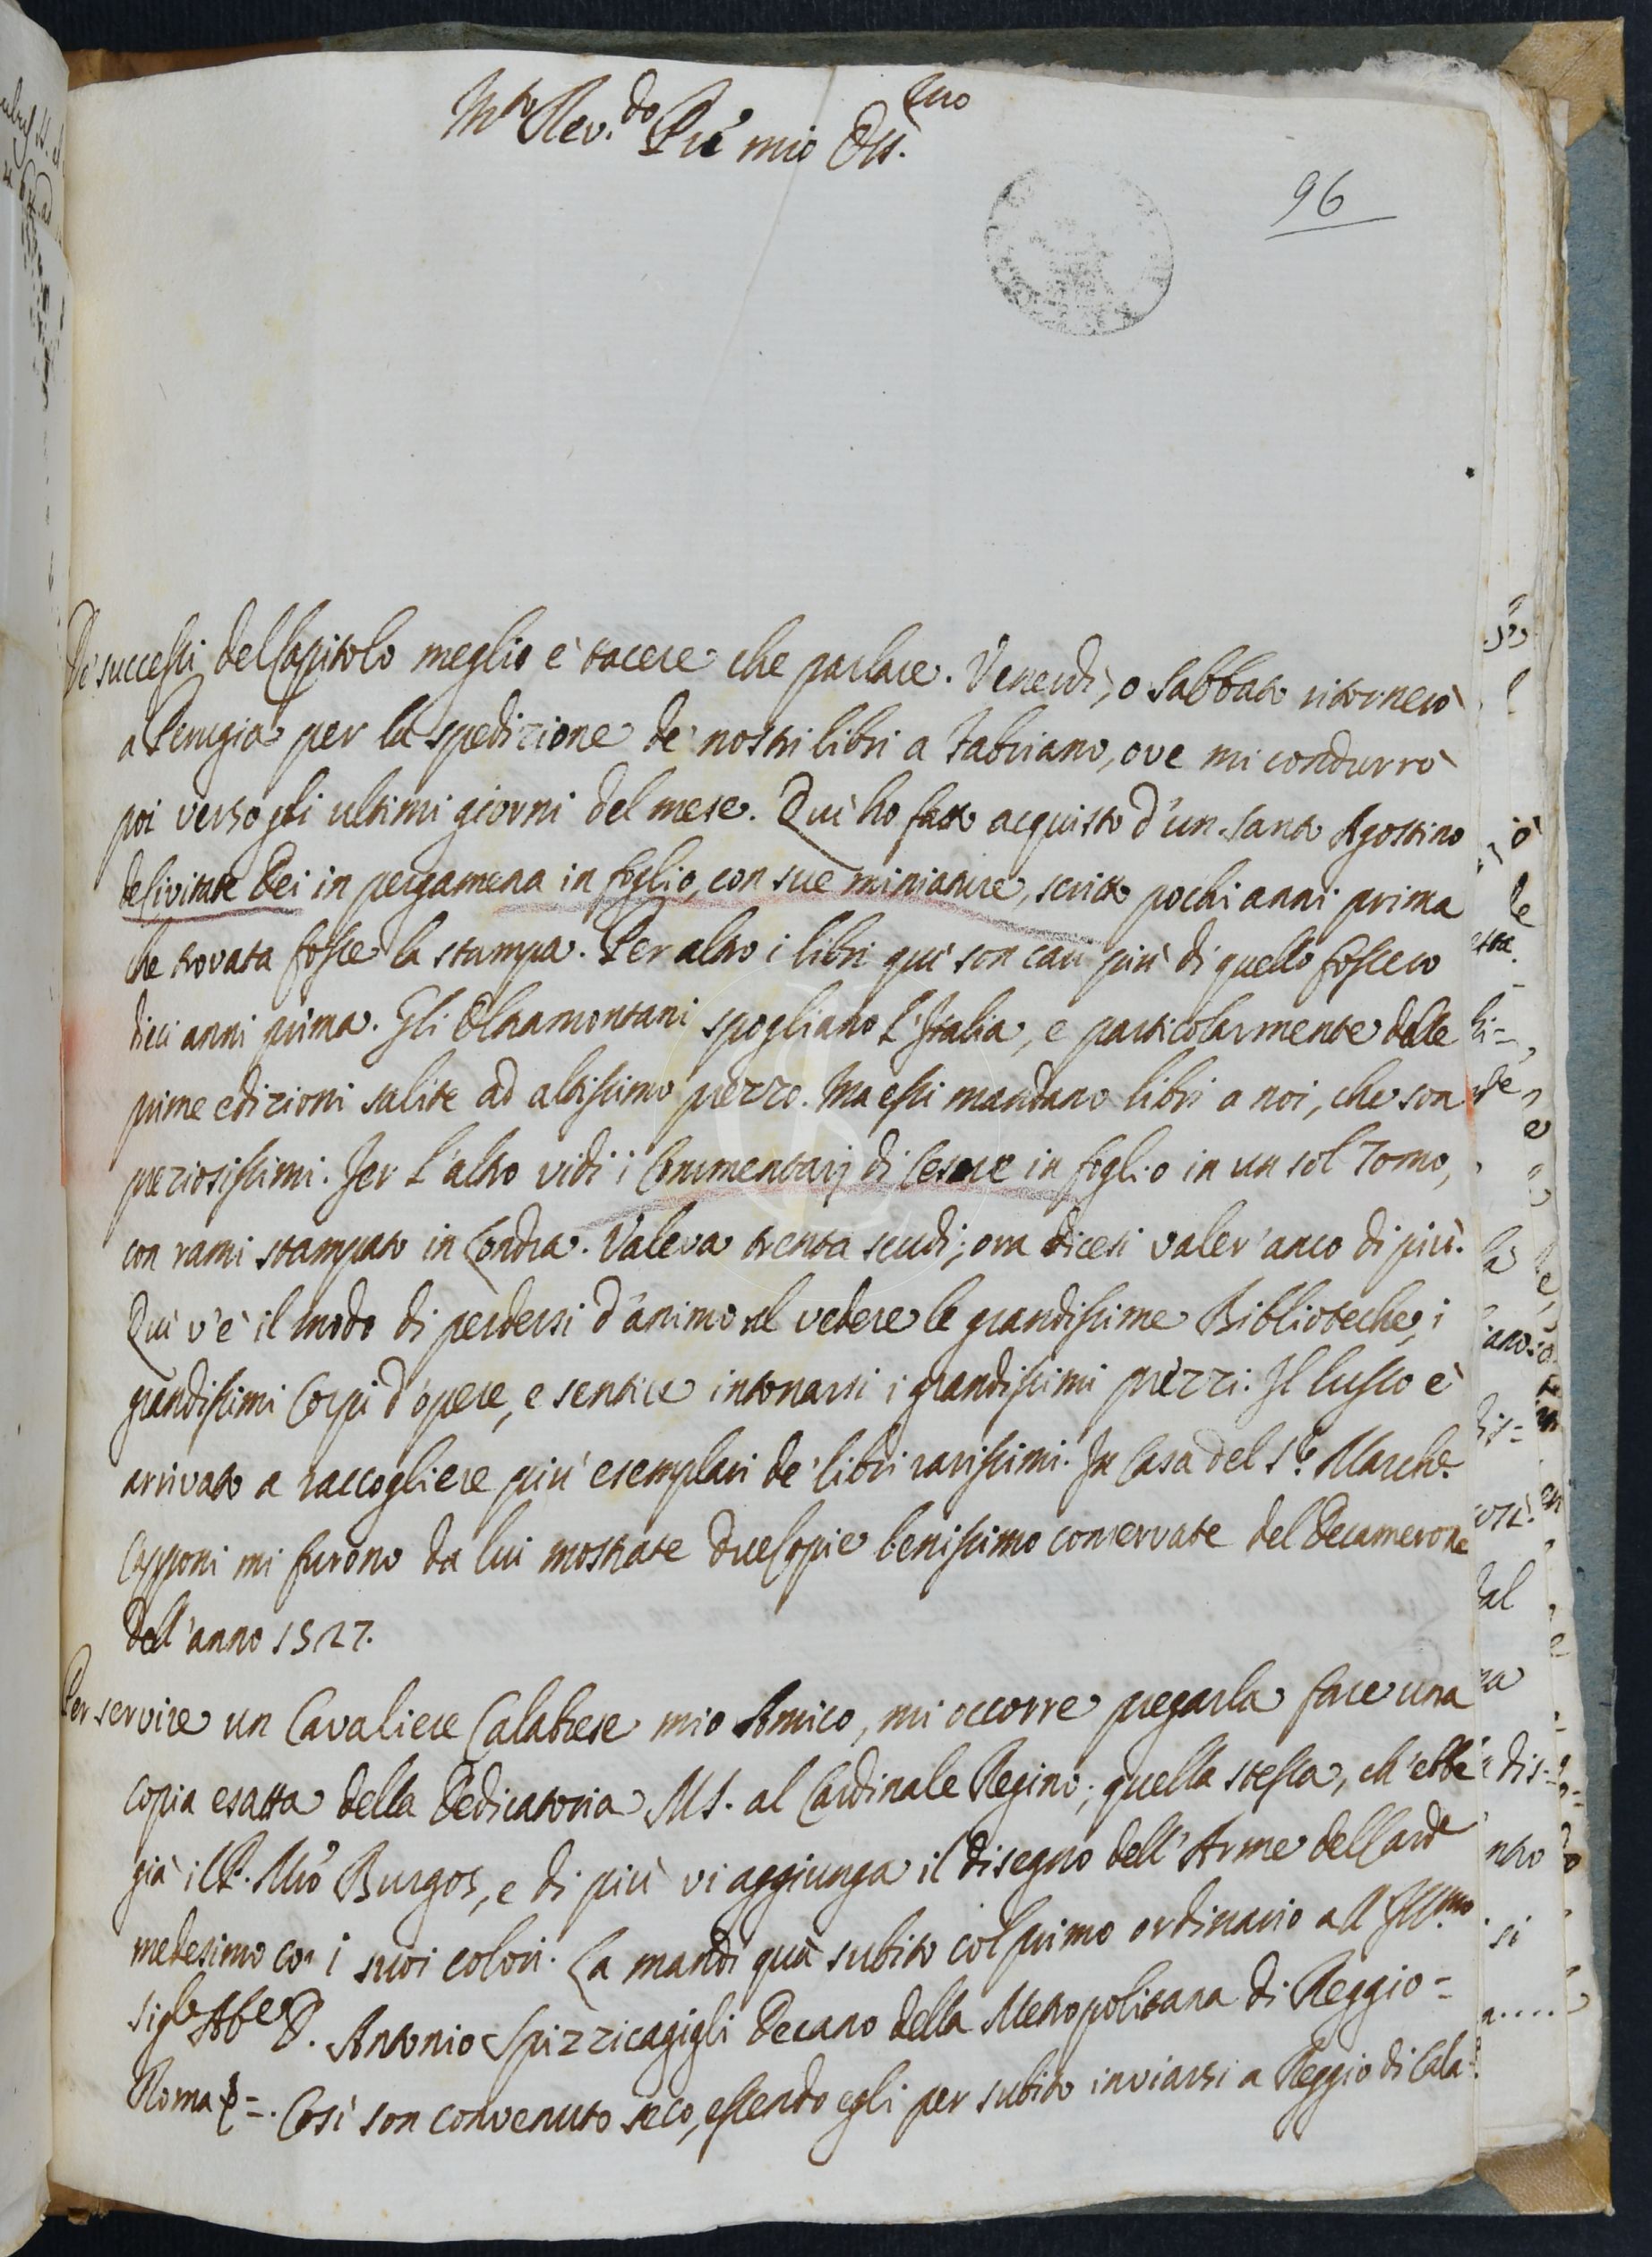 Mto Rev.do Pre mio Oss.mo
96
De' successi del Capitolo meglio è tacere che parlare. Venerdì, o Sabbato ritornerò
a Perugia per la spedizione de' nostri libri a Fabriano, ove mi condurrò
poi verso gli ultimi giorni del mese. Quì ho fatto acquisto d'un Santo Agostino
de Civitate Dei in pergamena in foglio, con sue miniature, scritto pochi anni prima
che trovata fosse la stampa. Per altro i libri quì son cari più di quello fossero
dieci anni prima. Gli Oltramontani spogliano l'Italia, e particolarmente delle
prime edizioni salite ad altissimo prezzo. Ma essi mandano libri a noi, che son
preziosissimi. Jer l'altro vidi i Commentarj di Cesare in foglio in un sol Tomo,
con rami stampato in Londra. Valeva trenta scudi; ora dicesi valer'anco di più.
Quì v'è il modo di perdersi d'animo al vedere le grandissime Biblioteche, i
grandissimi Corpi d'opere, e sentire intonarsi i grandissimi prezzi. Il lusso è
arrivato a raccogliere più esemplari de' libri rarissimi. In Casa del Sr. Marche.
Capponi mi furono da lui mostrate due Copie benissimo conservate del Decamerone
dell'anno 1527.
Per servire un Cavaliere Calabrese mio Amico, mi occorre pregarla fare una
copia esatta della Dedicatoria MS. al Cardinale Regino; quella stessa, ch'ebbe
già il P. Mro Burgos, e di più vi aggiunga il disegno dell'Arme del Carde
medesimo con i suoi colori. La mandi quà subito col primo ordinario all'Illmo
Sigre Abe D. Antonio Spizzicagigli Decano della Metropolitana di Reggio =
Roma =. Così son convenuto seco, essendo egli per subito inviarsi a Reggio di Cala=